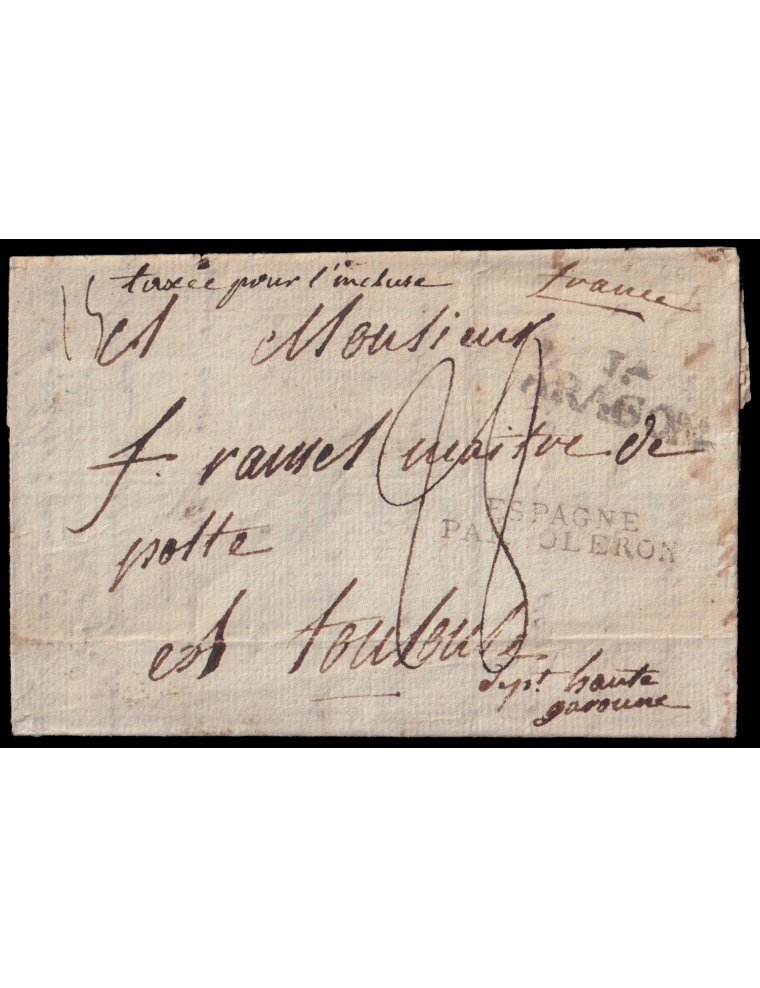 15
taxée pour l'incluse
france
A Monsieur
J.A
ARAGON
f. ramel maitre de
ESPAGNE
PAR OLERON
poste
A toulouse
dept. haute
garonne